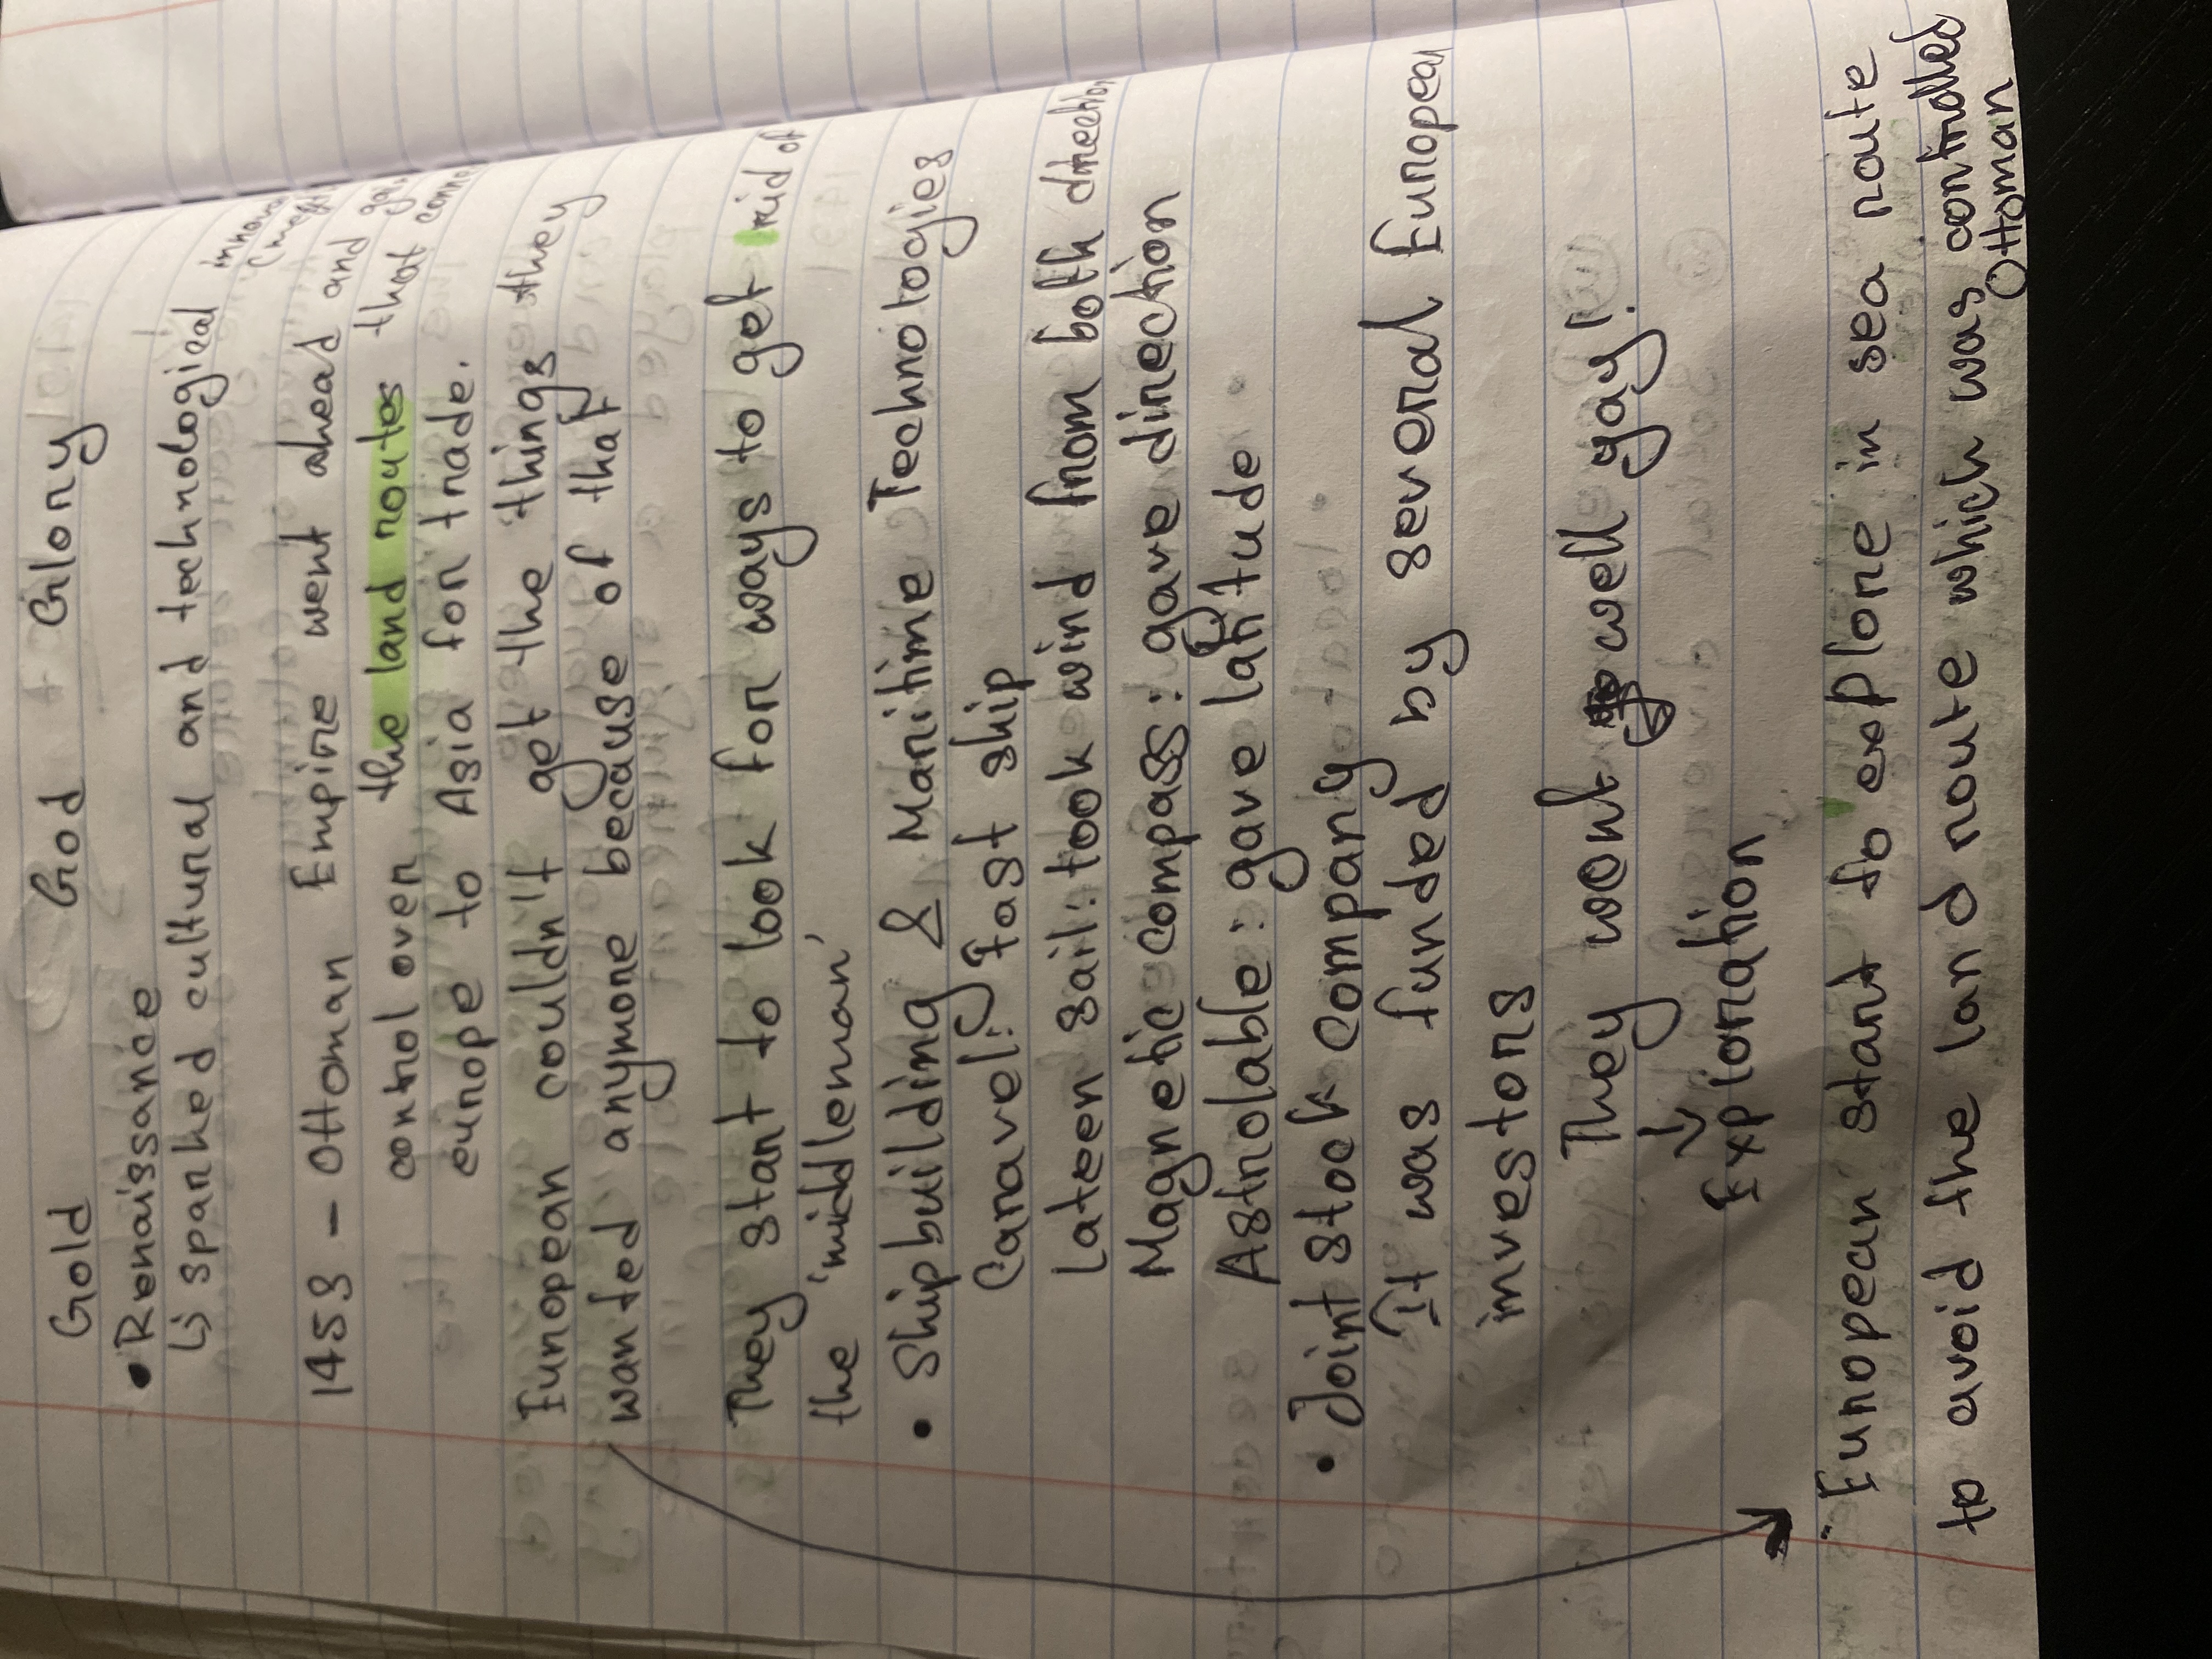 Gold God + Glory
• Renaissance
↳ sparked cultural and technological
1453 - Ottoman Empire went ahead and
control over the land routes that
europe to Asia for trade.
European couldn't get the things they
wanted anymore because of that
They start to look for ways to get rid of
the 'middleman'
• Shipbuilding & Maritime Technologies
Caravel: fast ship
Lateen sail: took wind from both direction
Magnetic compass: gave direction
Astrolable: gave latitude
• Joint stock company
It was funded by several European
investors
They went well yay!
↓
Exploration
European start to explore in sea route
to avoid the land route which was controlled
Ottoman